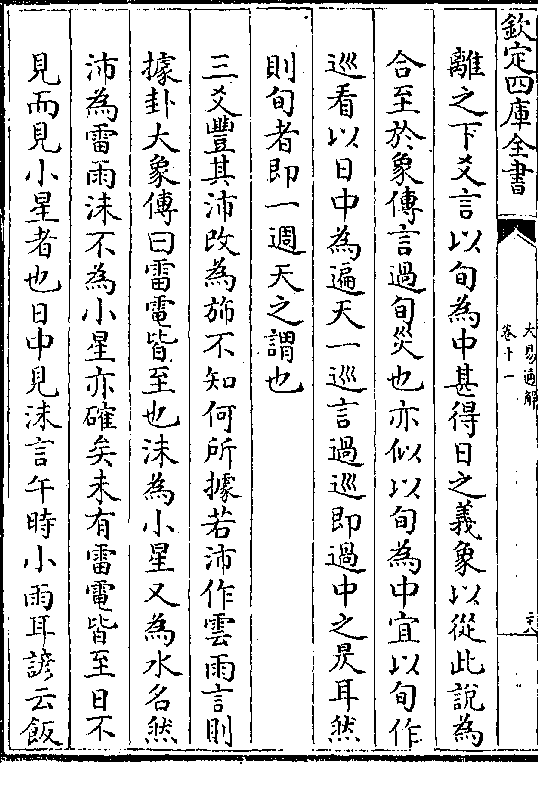 欽定四庫全書
大易通解
卷十一
離之下爻言以旬為中甚得日之義象以從此說為
合至於象傳言過旬災也亦似以旬為中宜以旬作
巡看以日中為遍天一巡言過巡即過中之昃耳然
則旬者即一週天之謂也
三爻豐其沛改為斾不知何所據若沛作雲雨言則
據卦大象傳曰雷電皆至也沬為小星又為水名然
沛為雷雨沬不為小星亦確矣未有雷電皆至日不
見而見小星者也日中見沬言午時小雨耳諺云飯